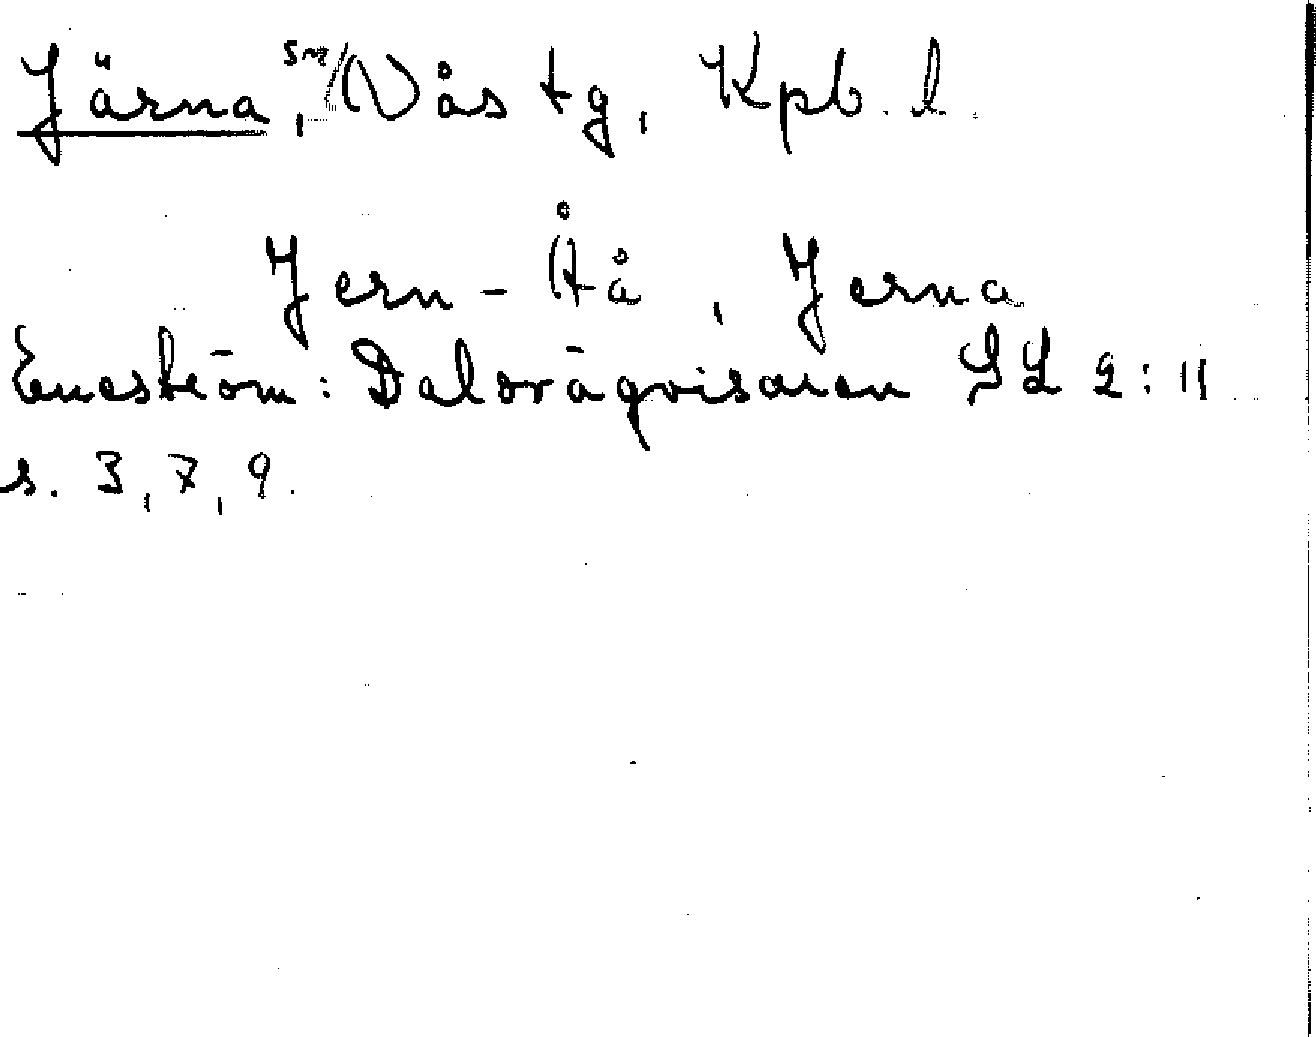 Järna, sn/ Nås tg, Kpb. l.
Jern-Åå, Jerna
Eneström: Dalvägvisaren SL 2:11
s. 3, 7, 9.